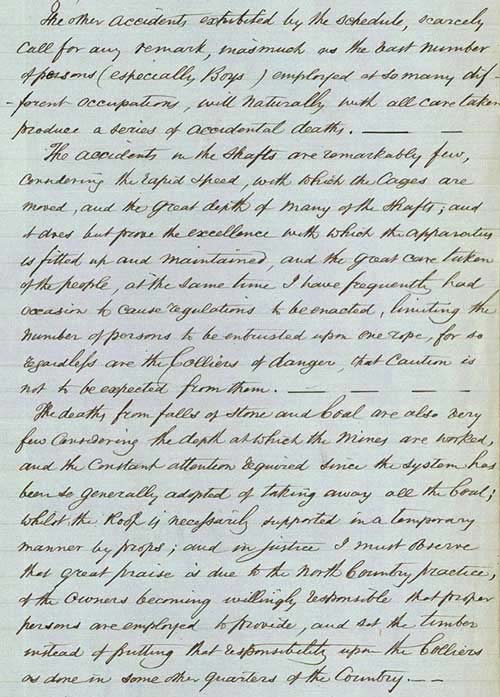 The other accidents exhibited by the schedule, scarcely
call for any remark, inasmuch as the vast number
of persons (especially Boys) employed at so many dif
-ferent occupations, will naturally with all care taken
produce a series of accidental deaths. — —
The accidents in the Shafts are remarkably few,
considering the rapid speed, with which the Cages are
moved, and the great depth of many of the Shafts; and
it does but prove the excellence with which the apparatus
is fitted up and maintained, and the great care taken
of the people, at the same time I have frequently had
occasion to cause regulations to be enacted, limiting the
number of persons to be entrusted upon one rope, for so
regardless are the Colliers of danger, that Caution is
not to be expected from them. — — — —
The deaths from falls of Stone and Coal are also very
few Considering the depth at which the Mines are worked,
and the Constant attention required since the system has
been so generally adopted of taking away all the Coal;
whilst the Roof is necessarily supported in a temporary
manner by props; and in justice I must observe
that great praise is due to the North Country practice,
of the Owners becoming willingly responsible that proper
persons are employed to provide, and set the timber
instead of putting that responsibility upon the Colliers
as done in some other quarters of the Country. — —